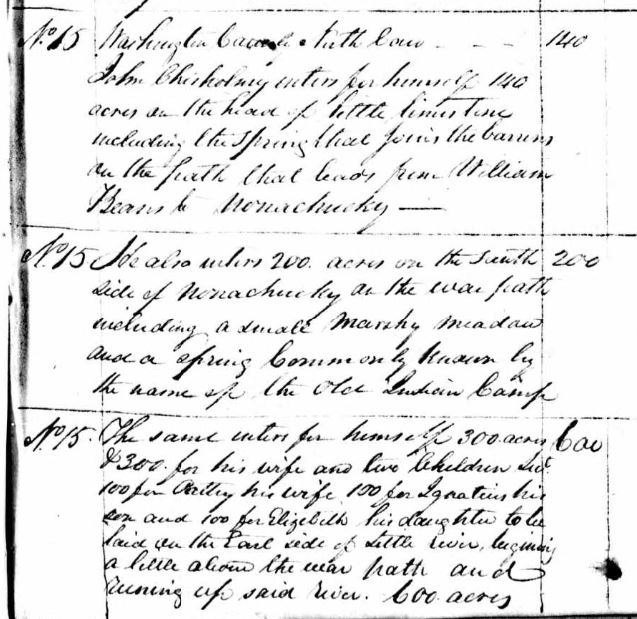 No. 15 Washington County North Caro - - - 140
John Chisholm enters for himself 140
acres on the head of little limestone
including the Spring that joins the barrens
on the path that leads from William
Beans to Nonachucky —
No. 15 He also enters 200. acres on the South 200
side of Nonachucky on the war path
including a small Marshy meadow
and a spring Commonly known by
the name of the Old Indian Camp
No. 15. The same enters for himself 300. acres 600
& 300. for his wife and two Children
100 for his wife 100 for Ignatius his
son and 100 for Elizebeth his daughter to be
laid on the East side of Little river, begining
a little above the war path and
runing up said river. 600 acres